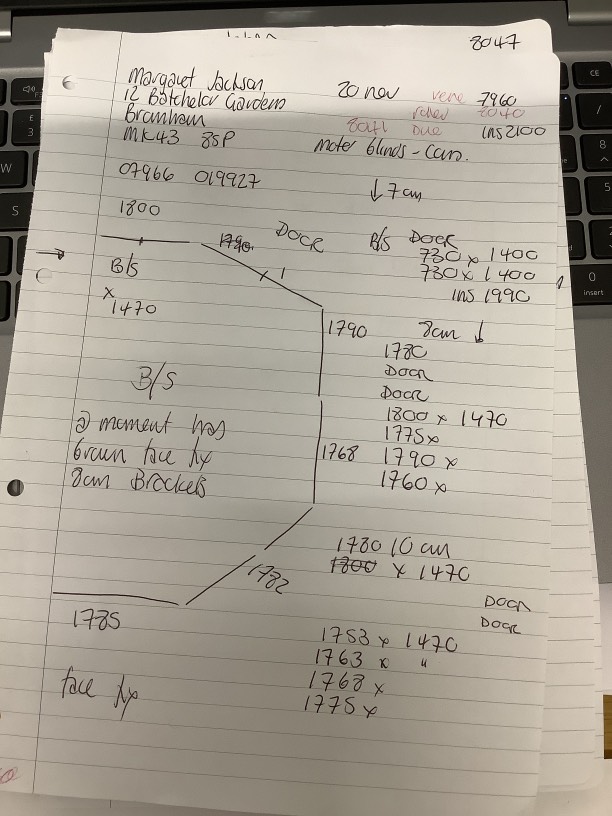 8047
Margaret Jackson
12 Batchelor Gardens
Bromham
MK43 8SP
07966 019927
20 nov
vene 7960
roller 2040
Duo ins 2100
moter blinds - Cam.
↓ 7cm
1800
1790
DOOR
B/S DOOR
730 x 1400
730 x 1400
ins 1990
B/S
x
1470
1790
8cm ↓
1780
DOOR
DOOR
1800 x 1470
1775 x
1768 1790 x
1760 x
B/S
@ moment has
brown face fix
8cm Brackets
1780 10 cm
1800 x 1470
1782
DOOR
DOOR
1785
1753 x 1470
1763 x "
1768 x
1775 x
face fix